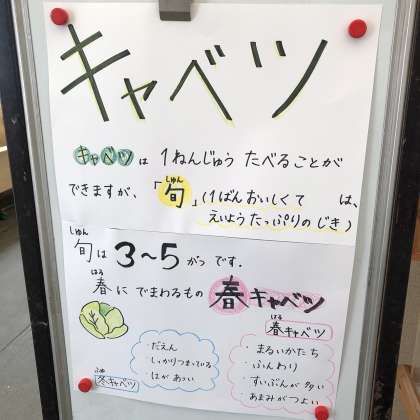 キャベツ
キャベツ は 1ねんじゅう たべることが
できますが、「旬」(1ばんおいしくて は、
しゅん
えいようたっぷりのじき)
しゅん
旬は 3〜5 がつ です。
はる
春に でまわるもの 春キャベツ
はる
春キャベツ
・だえん
・しっかりつまっている
・はが あつい
ふゆ
冬キャベツ
・まるいかたち
・ふんわり
・すいぶんが多い
・あまみがつよい